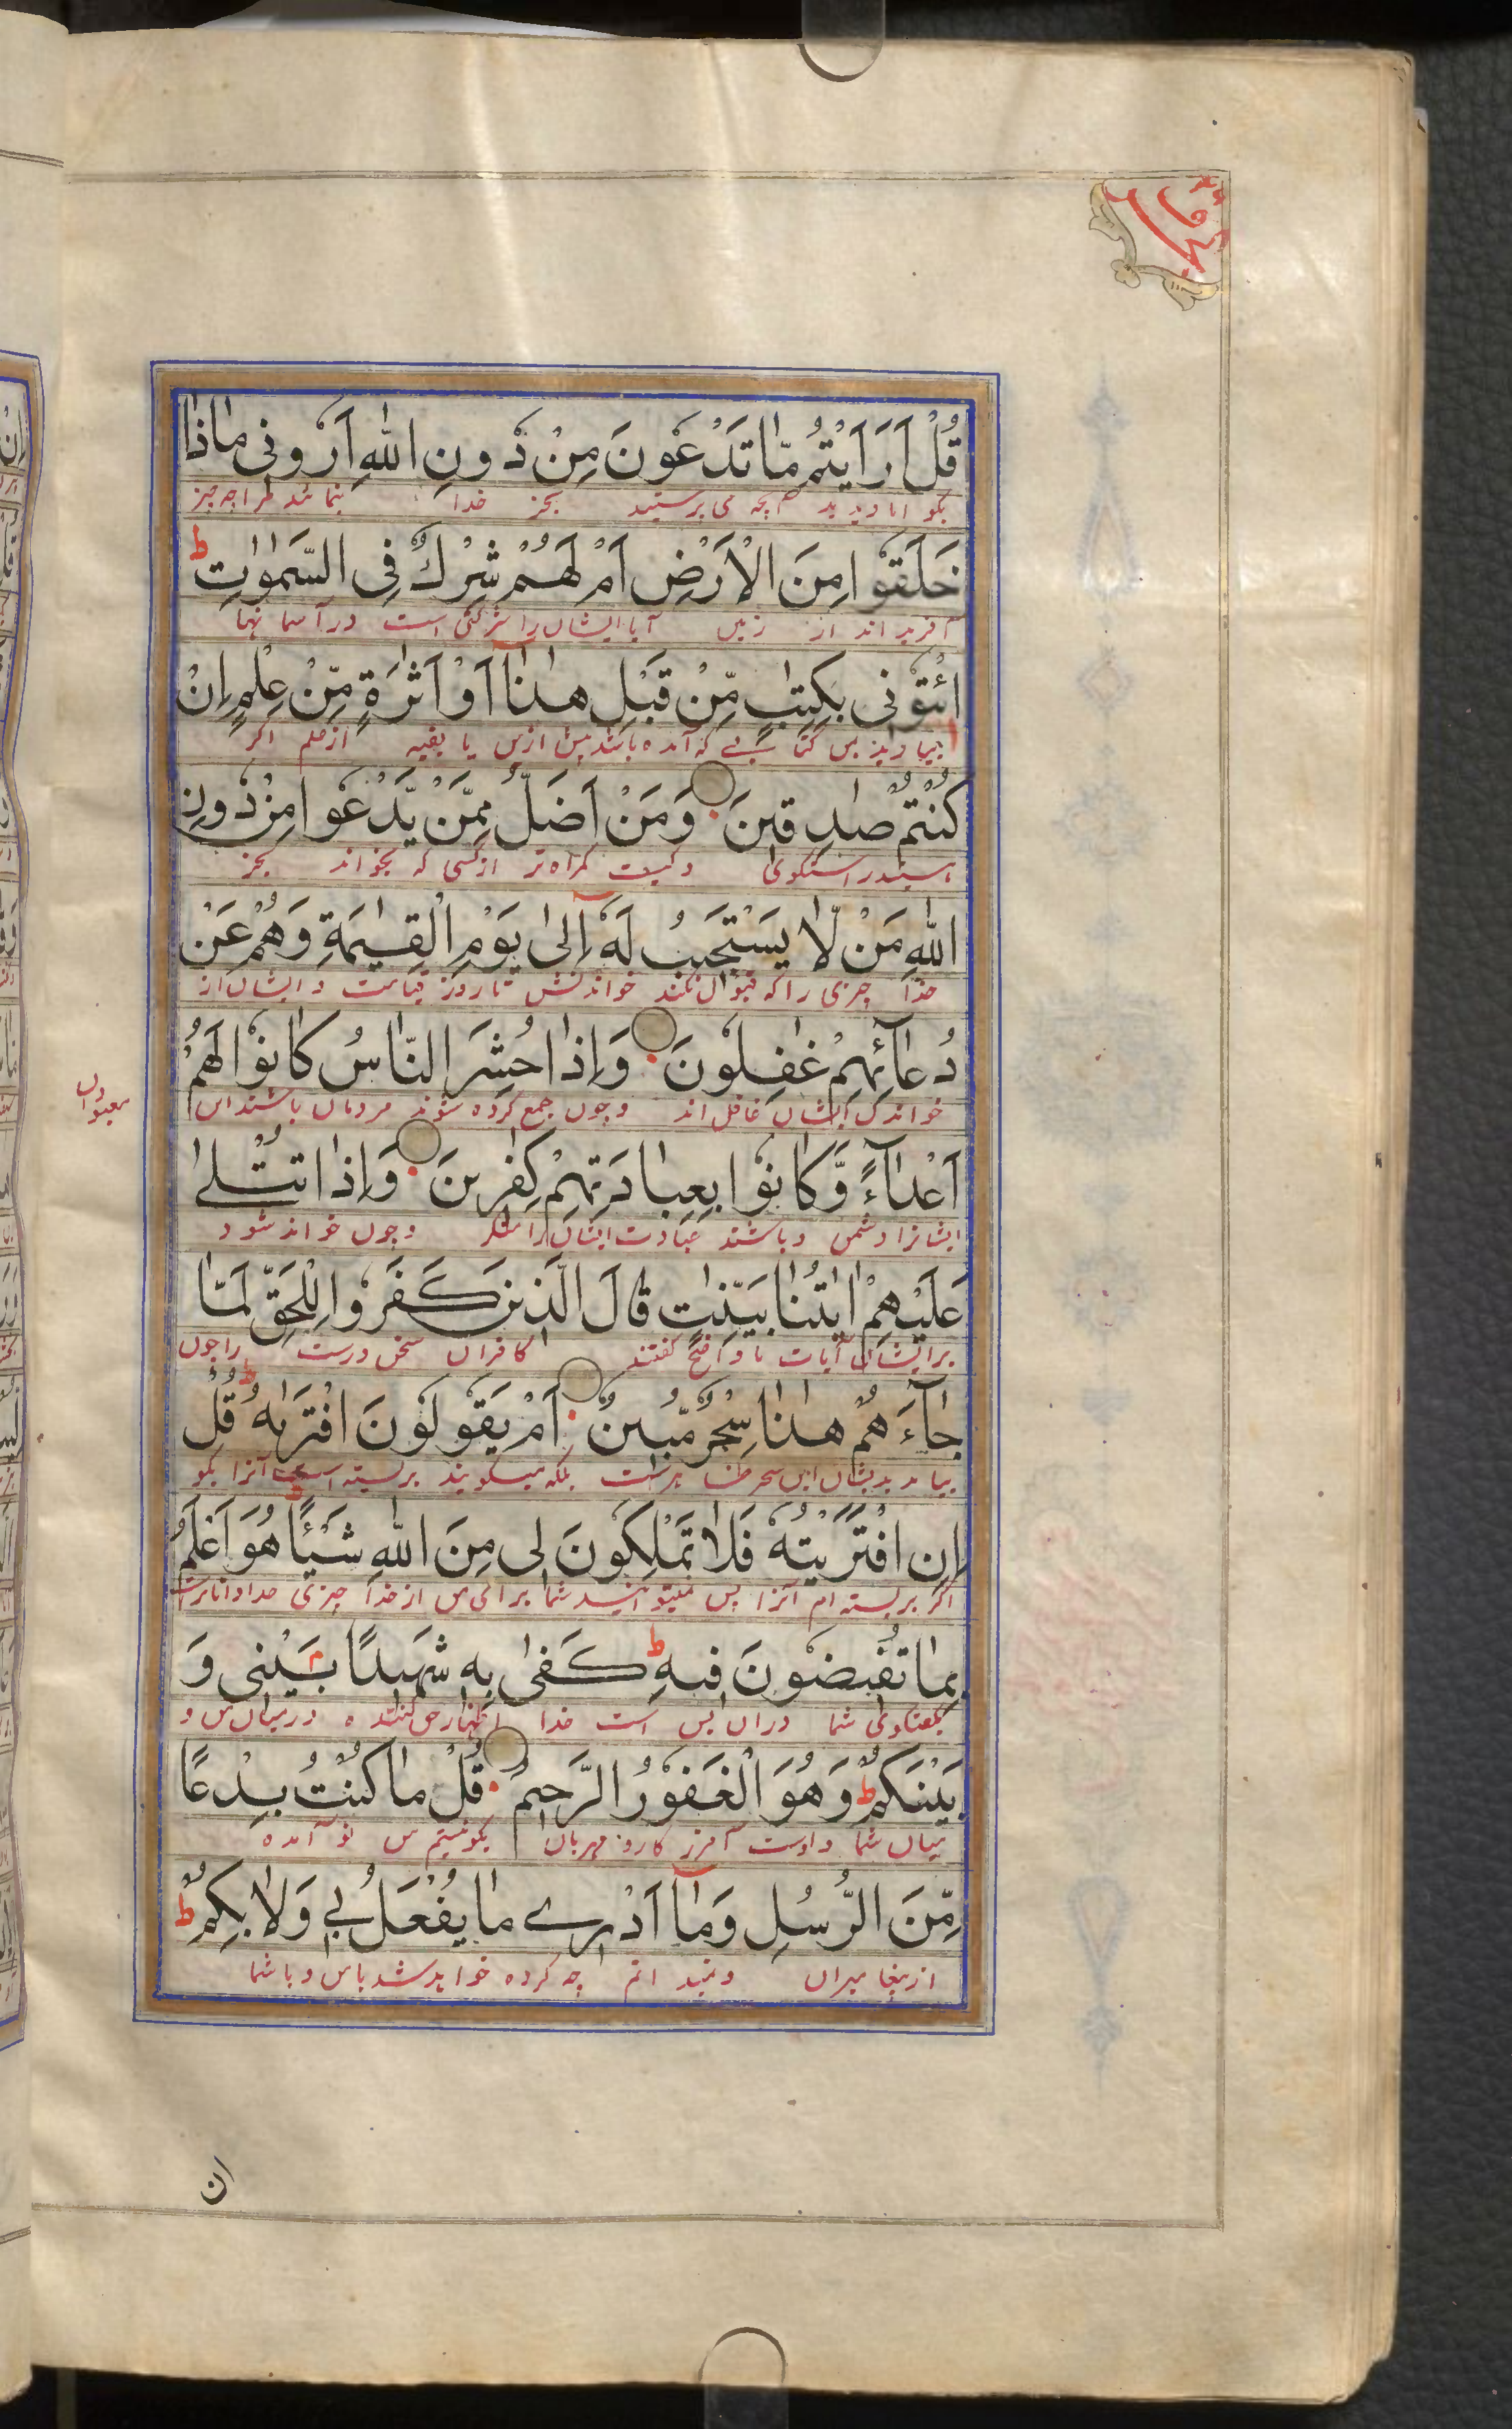 قُلْ اَرَاَيْتُمْ مّٰا تَدْعُونَ مِنْ دُونِ اللّٰهِ اَرُونِى مٰاذٰا
بگو ایا دیدید آنچه می پرستید بجز خدا بنمائید مرا چه چیز
خَلَقُوا مِنَ الْاَرْضِ اَمْ لَهُمْ شِرْكٌ فِى السَّمٰوٰتِ ط
آفریده اند از زمین آیا ایشان را شرکتی است در آسمانها
ائْتُونِى بِكِتٰبٍ مِّنْ قَبْلِ هٰذٰآ اَوْ اَثٰرَةٍ مِّنْ عِلْمٍ اِنْ
بیاورید بمن کتابی که آمده باشد پیش ازین یا بقیه از علم اگر
كُنْتُمْ صٰدِقِينَ وَمَنْ اَضَلُّ مِمَّنْ يَّدْعُوا مِنْ دُونِ
هستید راستگوی و کیست گمراه تر از کسی که بخواند بجز
اللّٰهِ مَنْ لّٰا يَسْتَجِيبُ لَهُٓ اِلٰى يَوْمِ الْقِيٰمَةِ وَهُمْ عَنْ
خدا چیزی را که قبول نکند خواندنش تا روز قیامت و ایشان از
دُعٰآئِهِمْ غٰفِلُونَ وَاِذٰا حُشِرَ النّٰاسُ كٰانُوا لَهُمْ
خواندن ایشان غافل اند و چون جمع کرده شوند مردمان باشند این
معبودان
اَعْدٰآءً وَّكٰانُوا بِعِبٰادَتِهِمْ كٰفِرِينَ وَاِذٰا تُتْلٰى
ایشانرا دشمن و باشند عبادت ایشان را منکر و چون خوانده شود
عَلَيْهِمْ اٰيٰتُنٰا بَيِّنٰتٍ قٰالَ الَّذِينَ كَفَرُوا لِلْحَقِّ لَمّٰا
بر ایشان آیات ما واضح گفتند کافران سخن درست را چون
جٰآءَهُمْ هٰذٰا سِحْرٌ مُّبِينٌ اَمْ يَقُولُونَ افْتَرٰىهُ ط قُلْ
بیامد بدیشان این سحر ظاهر است بلکه میگویند بر بسته است آنرا بگو
اِنِ افْتَرَيْتُهُ فَلٰا تَمْلِكُونَ لِى مِنَ اللّٰهِ شَيْئًا ط هُوَ اَعْلَمُ
اگر بر بسته ام آنرا پس نمیتوانید شما برای من از خدا چیزی خدا داناتر است
بِمٰا تُفِيضُونَ فِيهِ ط كَفٰى بِهِ شَهِيدًا بَيْنِى وَ
بگفتگوی شما در ان بس است خدا اظهار حق کننده در میان من و
بَيْنَكُمْ ط وَهُوَ الْغَفُورُ الرَّحِيمُ قُلْ مٰا كُنْتُ بِدْعًا
میان شما و اوست آمرزگار و مهربان بگو نیستم من نو آمده
مِّنَ الرُّسُلِ وَمٰآ اَدْرِے مٰا يُفْعَلُ بِى وَلٰا بِكُمْ ط
از پیغامبران و نمیدانم چه کرده خواهد شد با من و با شما
ان